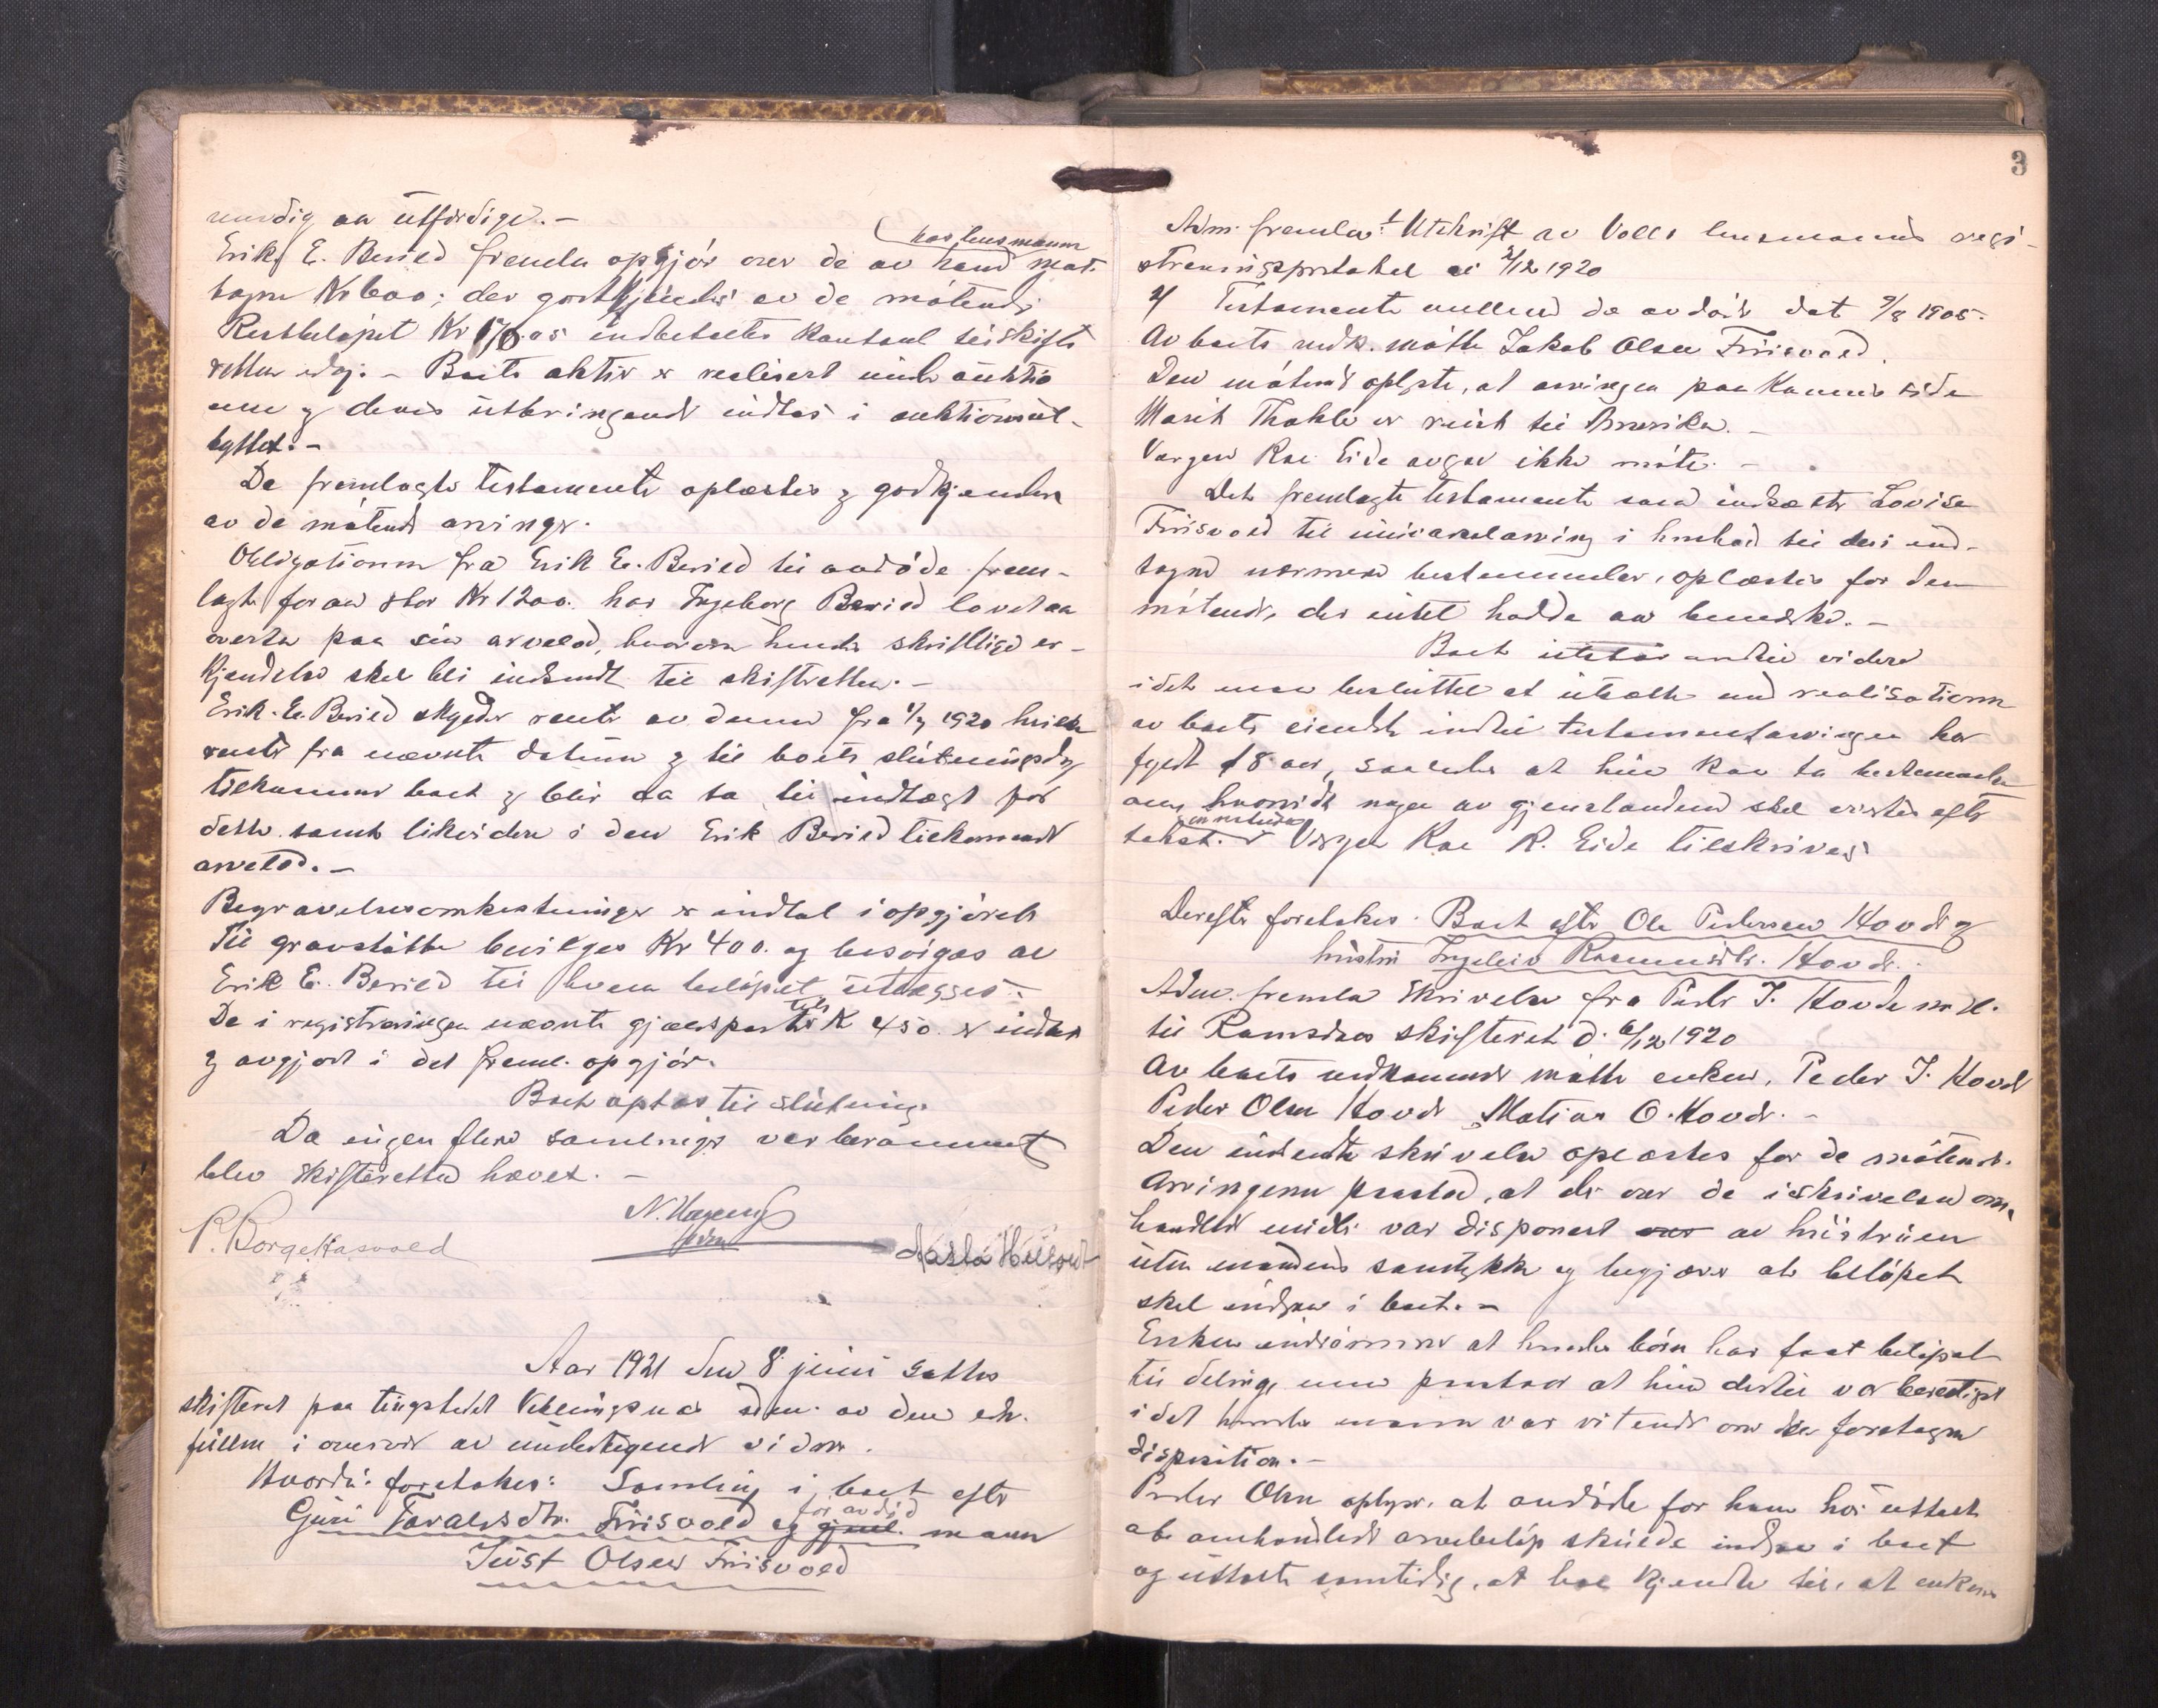 aa utfærdige. -
hos lensmann
Erik E. Berild fremla opgjør over de av ham mot-
tagne Kr 600; der godkjendes av de møtende
Restbeløpet Kr indbetaltes kontant til skifte
retten idag. - Boets aktiv er realisert ved auktio
nen og dennes utbringende indtas i auktionsut-
lægget. -
De fremlagte testamente oplæstes og godkjendes
av de møtende arvinger.
Obligationen fra Erik E. Berild til avdøde frem-
lagt foran stor Kr 1200. har Ingeborg Beried lovet aa
overta paa sin arvelod, hvorom hendes skriftlige er-
kjendelse skal bli indsendt til skifteretten. -
Erik E. Beried skylder rente av denne fra 1/7 1920 hvilken
rente fra nævnte datum og til boets slutningsdag
tilkommer boet og blir aa ta til indtægt for
dette samt likvidere i den Erik Beried tilkommende
arvelod. -
Begravelsesomkostninger er indtat i opgjøret
Til gravstøtte bevilges Kr 400. og besørges av
Erik E. Beried til hvem beløpet utlægges.
De i registreringen nævnte gjældsposter K 450. er indtat
og avgjort i det freml. opgjør.
Boet optas til slutning.
Da ingen flere samlinger var berammet
blev skifteretten hævet. -
P. Borge Hasvold
N. Hagen
Aasta Hellsvedt
Aar 1921 den 8 juni sattes
skifteret paa tingstedet Vellingsnes adm. av den edv.
fuldm i overvær av undertegnede vidner.
Hvorda: foretokes: Samling i boet efter
for avdød
Guri Taraldsdtr. Friisvold og gjenl. mann
Just Olsen Friisvold
3
Adm. fremla: 1 Utskrift av Volls lensmanns regi-
streringsprotokol av 2/12 1920
2/ Testamente mellem de avdøde dat 9/8 1905.
Av boets vedk. møtte Jakob Olsen Friisvoed.
Den møtende oplyste, at arvingen paa konens side
Marit Thokle er reist til Amerika. -
Vergen Roe Eide avgav ikke møte. -
Det fremlagte testamente som indsætte Lovise
Friisvoed til universalarving i henhold til deri ind-
tagne nærmere bestemmelser, oplæstes for den
møtende, der intet hadde aa bemerke. -
Boet utstaar indtil videre
idet man besluttet at utsætte med realisationen
av boets eiendele indtil testamentarvingen har
fyldt 18 aar, saaledes at hun kan ta bestemmelse
om hvorvidt nogen av gjenstandene skal
Vergen Roe R. Eide tilskrives
Derefter foretokes. Boet efter Ole Pedersen Hovde og
hustru Ingeleiv Rasmusdtr. Hovde.
Adm. fremla skrivelse fra Peder J. Hovde m fl.
til Romsdals skifteret d. 6/12 1920
Av boets vedkommende møtte enken, Peder J. Hovde
Peder Olsen Hovde Matias O. Hovde. -
Den indsendte skrivelse oplæstes for de møtende.
Arvingene paastod, at der over de i skrivelsen om-
handlede midler var disponert over av hustruen
uten mandens samtykke og begjærer at beløpet
skal indgaa i boet. -
Enken indrømmer at hendes børn har faat beløpet
til deling, men paastaar at hun dertil var berettiget
idet hendes mann var vitende om den foretagne
disposition. -
Peder Olsen oplyser, at avdøde for ham har uttalt
at omhandlede arvebeløp skulde indgaa i boet
og uttalte samtidig, at han kjendte til, at enken